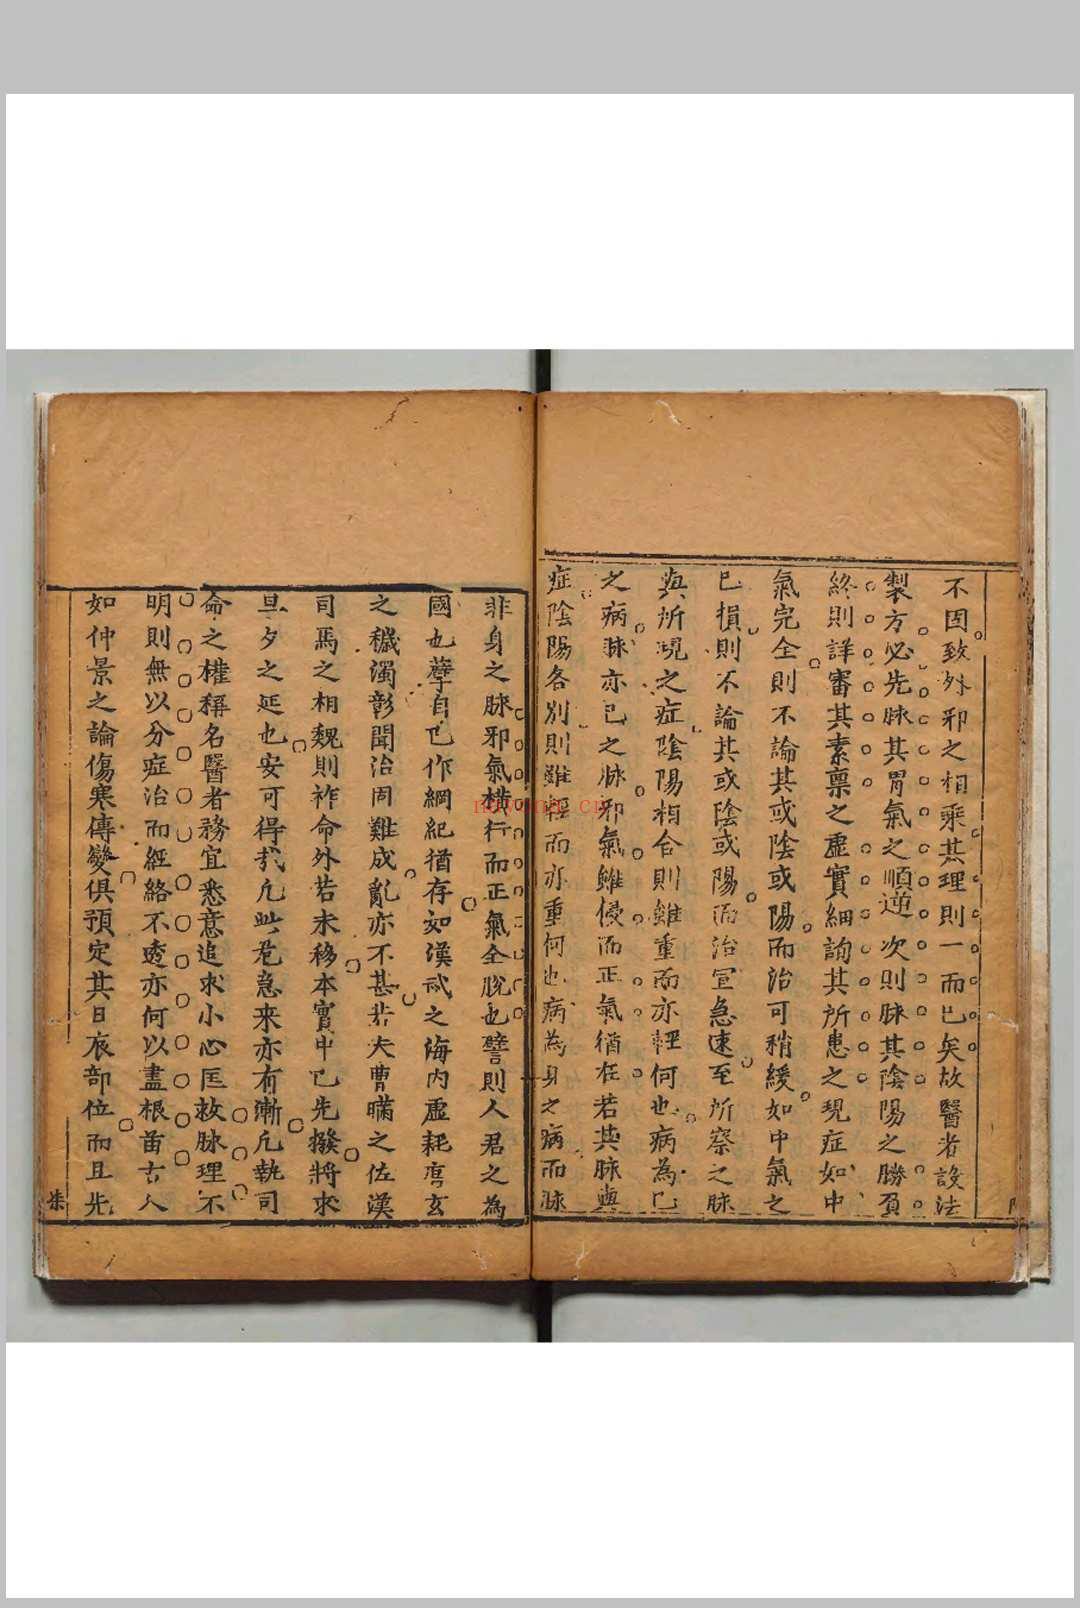 不因致外邪之相乘其理則一而已矣故醫者設法
製方必先脉其胃氣之順逆次則脉其陰陽之勝負
終則詳審其素稟之虛實細詢其所患之現症如中
氣完全則不論其或陰或陽而治可稍緩如中氣之
已損則不論其或陰或陽而治宜急速至所察之脉
與所現之症陰陽相合則雖重而亦輕何也病為已
之病脉亦已之脉邪氣雖侵而正氣猶在若其脉與
症陰陽各別則雖輕而亦重何也病為身之病而脉
非身之脉邪氣橫行而正氣全脫也譬則人君之為
國也孽自已作綱紀猶存如漢武之海内虛耗唐玄
之穢濁彰聞治固難成亂亦不甚若夫曹瞞之佐漢
司馬之相魏則祚命外若未移本實中已先撥將求
旦夕之延也安可得哉凡此危急來亦有漸凡執司
命之權稱名醫者務宜悉意追求小心匡救脉理不
明則無以分症治而經絡不透亦何以盡根苗古人
如仲景之論傷寒傳變俱預定其日辰部位而且先
柒
navona.cn